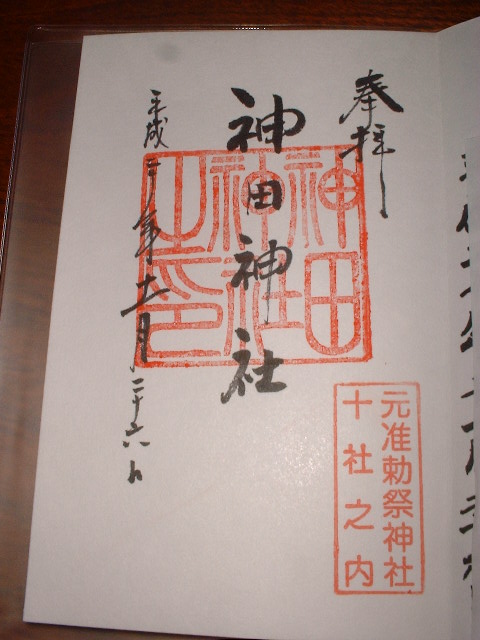 奉拝
神田神社
平成二十年十一月二十六日
神田
神社
之印
元准勅祭神社
十社之内